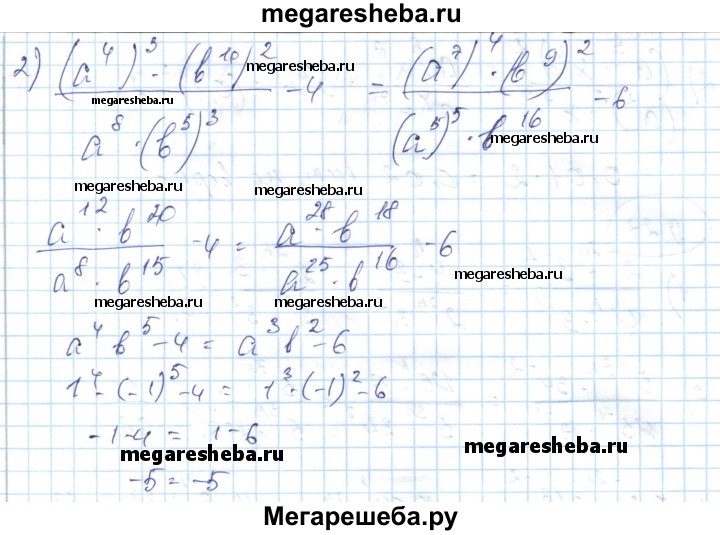 megaresheba.ru
2) (a⁴)³ · (b¹⁰)² / a⁸ · (b⁵)³ - 4 = (a⁷)⁴ · (b⁹)² / (a⁵)⁵ · b¹⁶ - 6
megaresheba.ru
megaresheba.ru
megaresheba.ru
megaresheba.ru
megaresheba.ru
a¹² · b²⁰ / a⁸ · b¹⁵ - 4 = a²⁸ · b¹⁸ / a²⁵ · b¹⁶ - 6
megaresheba.ru
megaresheba.ru
megaresheba.ru
a⁴ b⁵ - 4 = a³ b² - 6
1⁴ · (-1)⁵ - 4 = 1³ · (-1)² - 6
-1-4 = 1-6
megaresheba.ru
megaresheba.ru
-5 = -5
Мегарешеба.ру